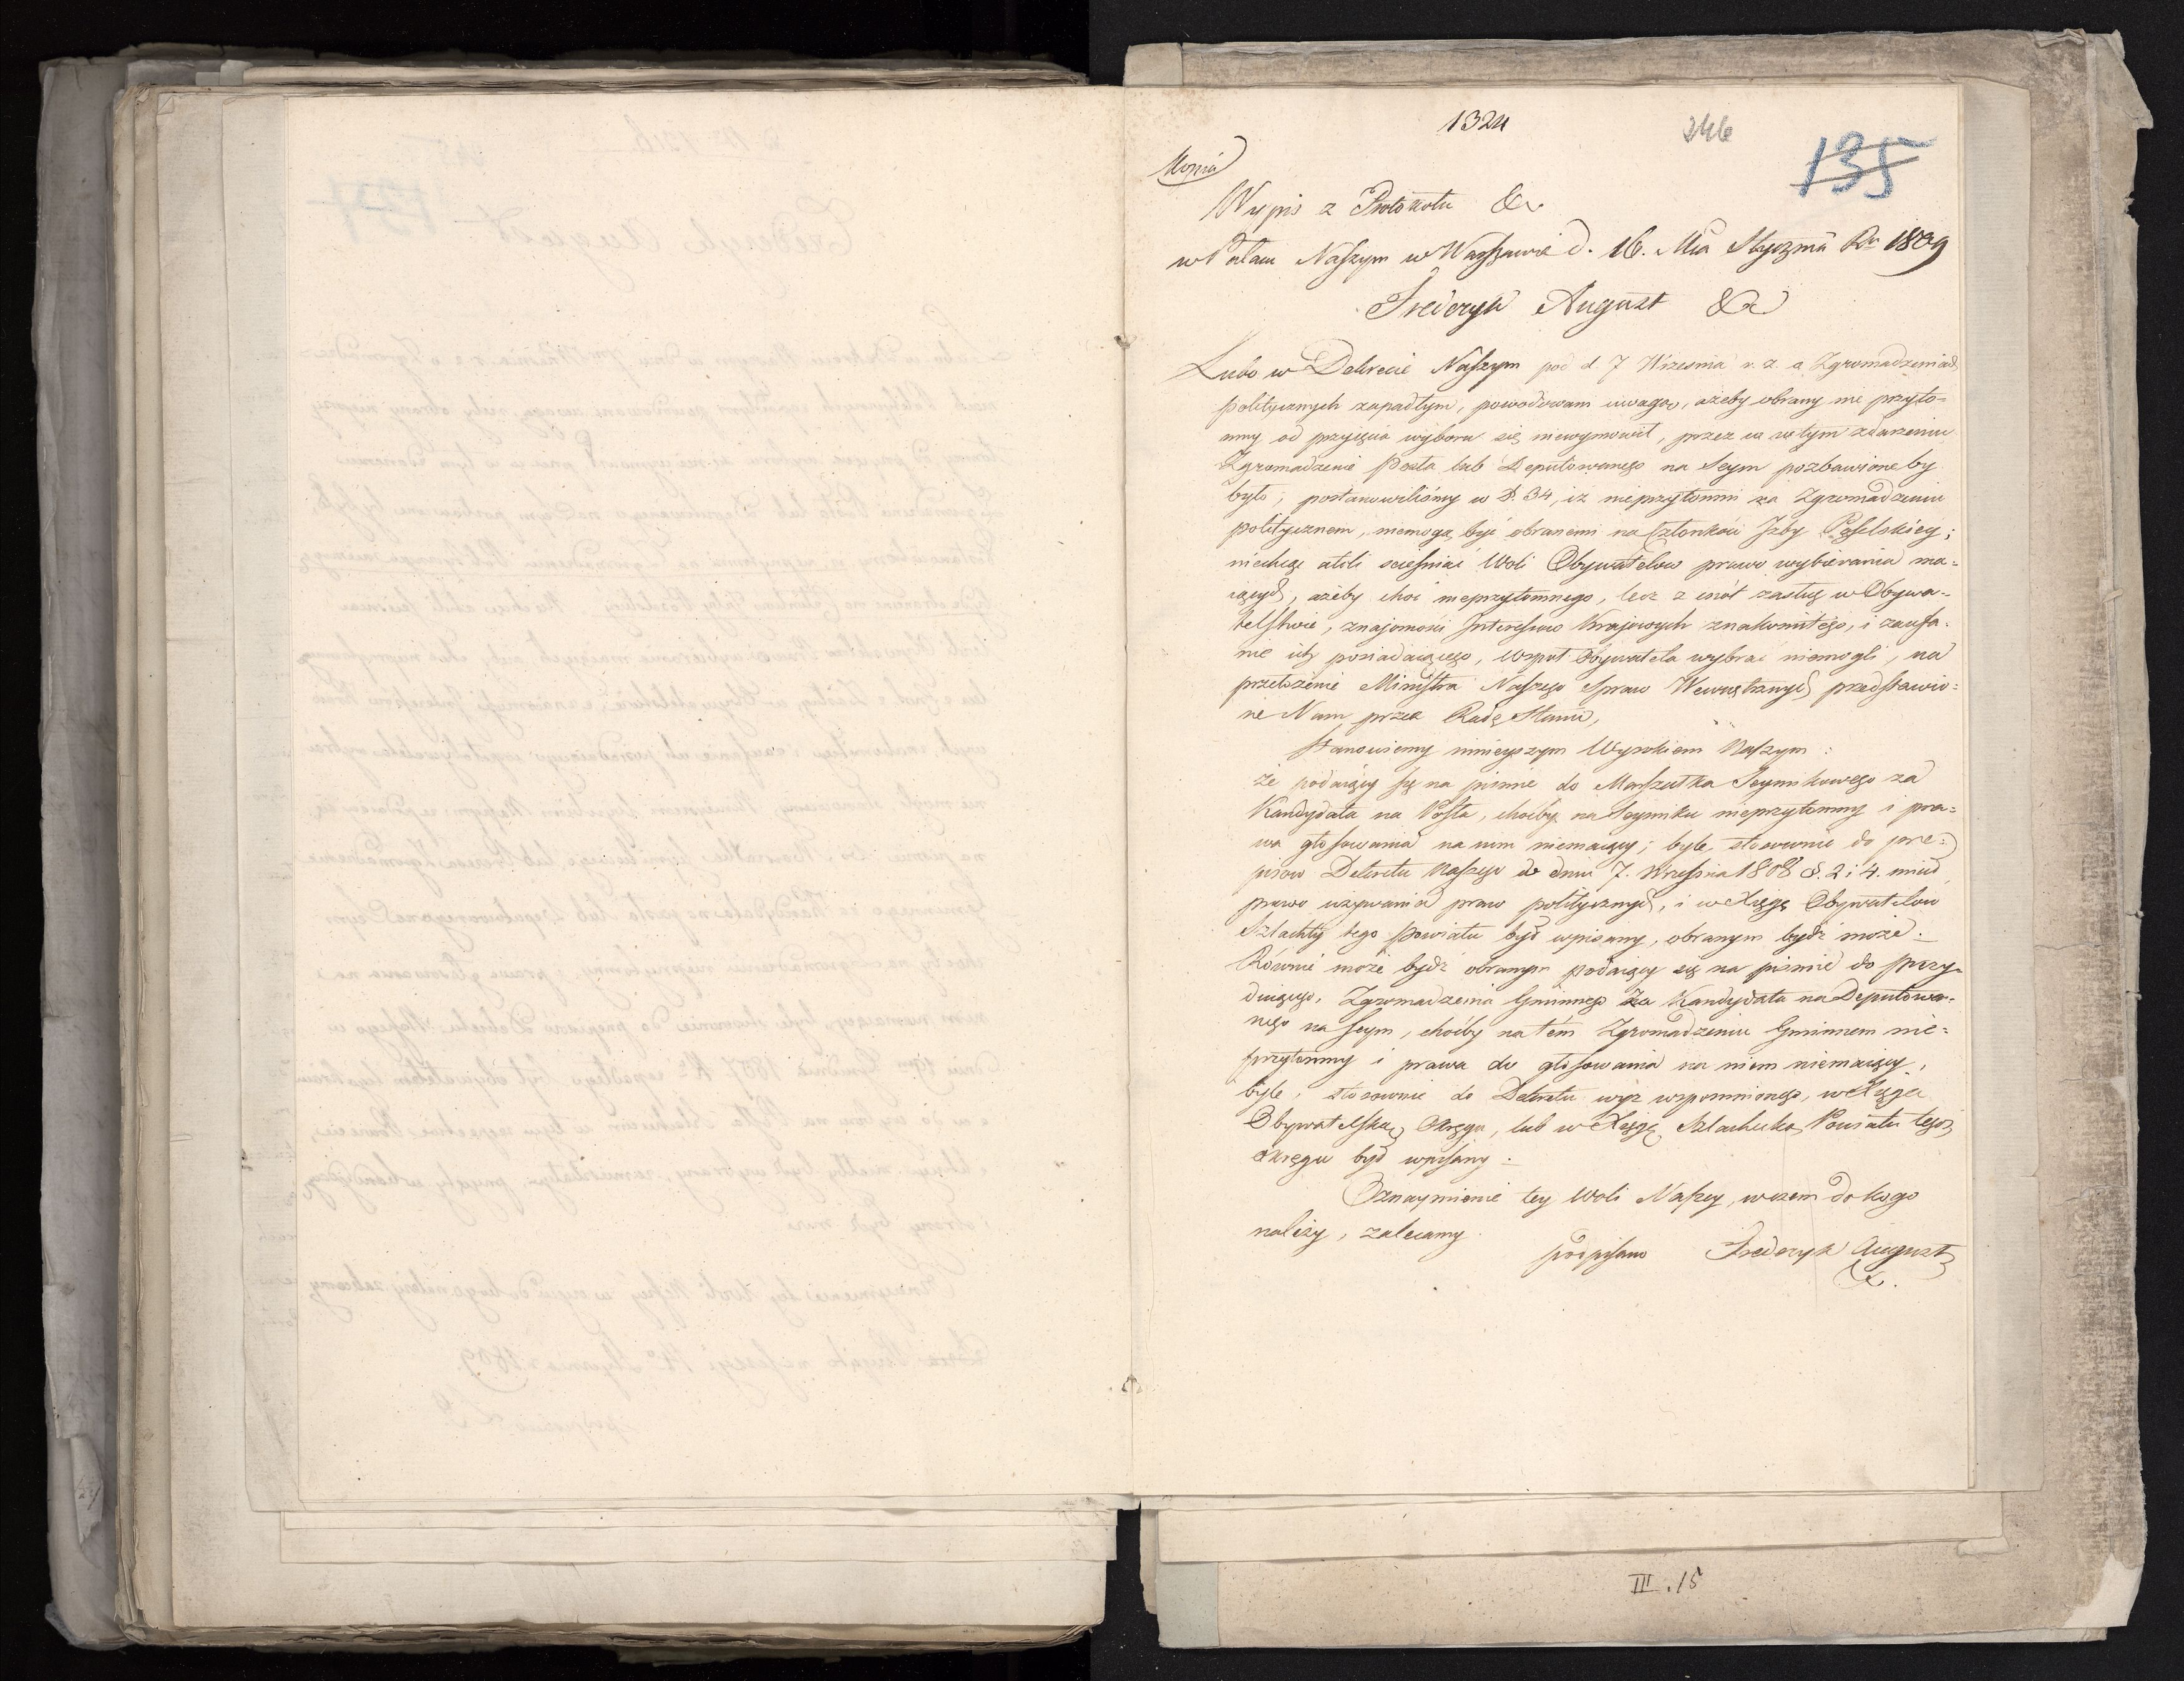 1324
246
135
Kopia
Wypis z Protokołu &c
w Pałacu Naszym w Warszawie d. 16. Mca Stycznia Ru 1809
Fryderyk August &c
Lubo w Dekrecie Naszym pod d. 7 Września r. z. o Zgromadzeniach
politycznych zapadłym, powodowani uwagą, ażeby obrany nie przyto-
mny od przyięcia wyboru się niewymówił, przez co w tym zdarzeniu
Zgromadzenie Posła lub Deputowanego na Seym pozbawione by
było; postanowiliśmy w §. 34, iż nieprzytomni na Zgromadzeniu
politycznem, niemogą być obranemi na Członków Izby Poselskiey;
niechcąc atoli ścieśniać Woli Obywatelow prawo wybierania ma-
iących, ażeby choć nieprzytomnego, lecz z cnót zasług w Obywa-
telstwie, znajomości Interessow Krajowych znakomitego, i zaufa-
nie ich posiadaiącego, współ Obywatela wybrać niemogli, na
przełożenie Ministra Naszego Spraw Wewnętrznych przedstawio-
ne Nam przez Radę Stanu,
Stanowiemy ninieyszym Wyrokiem Naszym:
że podaiący się na piśmie do Marszałka Seymikowego za
Kandydata na Posła, choćby na Seymiku nieprzytomny i pra-
wa głosowania na nim niemaiący; byle stosownie do prze-
pisow Dekretu Naszego de dnia 7. Września 1808 §. 2 i 4. miał
prawo używania praw politycznych, i w Xięgę Obywatelow
Szlachty tego Powiatu był wpisany, obranym bydź może.
Równie może bydź obranym podaiący się na piśmie do Prezy-
duiącego, Zgromadzenia Gminnego za Kandydata na Deputowa-
nego na Seym, choćby na tém Zgromadzeniu Gminnem nie-
przytomny i prawa do głosowania na niem niemaiący,
byle, stosownie do Dekretu wyż wspomnionego, w Xięgę
Obywatelską Okręgu, lub w Xięgę Szlachecką Powiatu tegoż
okręgu był wpisany.
Oznaymienie tey Woli Naszey, wczem do kogo
należy, zalecamy
podpisano Fryderyk August
&c.
III.15